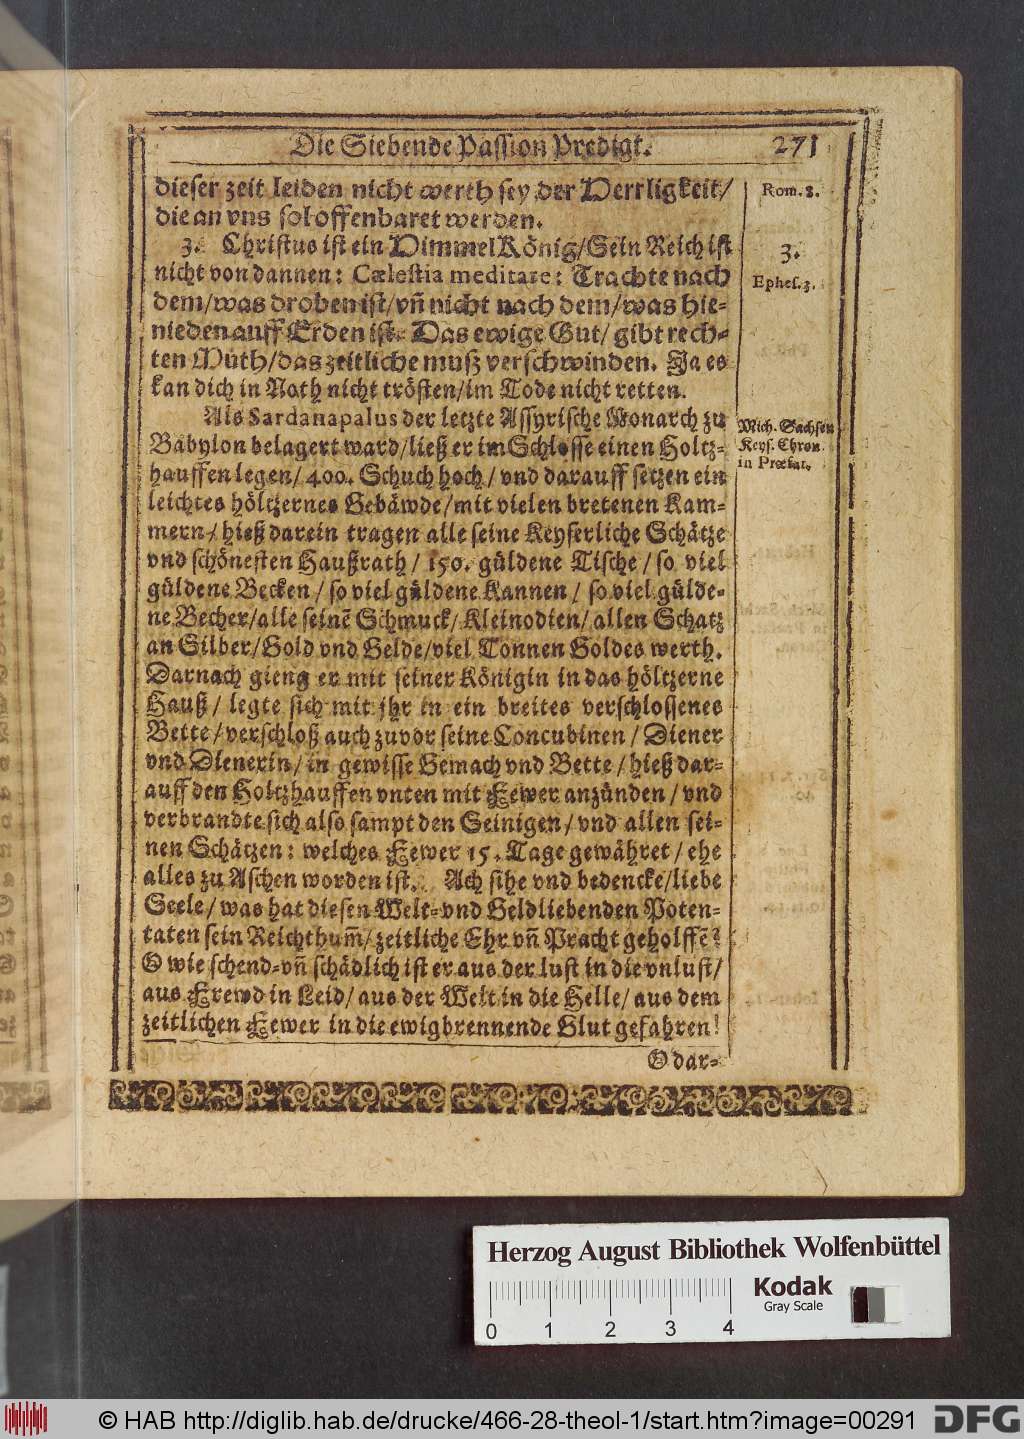 Die Siebende Passion Predigt. 271
dieser zeit leiden nicht werth sey der Herrligkeit/
die an vns sol offenbaret werden.
Rom. 8.
3. Christus ist ein Himmel König/Sein Reich ist
nicht von dannen: Cælestia meditare: Trachte nach
dem/was droben ist/vñ nicht nach dem/was hie-
nieden auff Erden ist. Das ewige Gut/ gibt rech-
ten Muth/das zeitliche muß verschwinden. Ja es
kan dich in Noth nicht trösten/im Tode nicht retten.
3.
Ephes. 3.
Als Sardanapalus der letzte Assyrische Monarch zu
Babylon belagert ward/ließ er im Schlosse einen Holtz-
hauffen legen/ 400. Schuch hoch/ vnd darauff setzen ein
leichtes höltzernes Gebäwde/mit vielen bretenen Kam-
mern/ hieß darein tragen alle seine Keyserliche Schätze
vnd schönesten Haußrath/ 150. güldene Tische/ so viel
güldene Becken/ so viel güldene Kannen/ so viel gülde-
ne Becher/alle seinẽ Schmuck/Kleinodien/allen Schatz
an Silber/Gold vnd Gelde/viel Tonnen Goldes werth.
Darnach gieng er mit seiner Königin in das höltzerne
Hauß/ legte sich mit jhr in ein breites verschlossenes
Bette/verschloß auch zuvor seine Concubinen/ Diener
vnd Dienerin/ in gewisse Gemach vnd Bette/ hieß dar-
auff den Holtzhauffen vnten mit Fewer anzünden/ vnd
verbrandte sich also sampt den Seinigen/ vnd allen sei-
nen Schätzen: welches Fewer 15. Tage gewähret/ ehe
alles zu Aschen worden ist. Ach sihe vnd bedencke/liebe
Seele/ was hat diesen Welt-vnd Geldliebenden Poten-
taten sein Reichthum̃/zeitliche Ehr vñ Pracht geholffẽ?
O wie schend-vñ schädlich ist er aus der lust in die vnlust/
aus Frewd in Leid/ aus der Welt in die Helle/ aus dem
zeitlichen Fewer in die ewigbrennende Glut gefahren!
Mich. Sachsen
Keys. Chron.
in Præfat.
O dar-
Herzog August Bibliothek Wolfenbüttel
Kodak
Gray Scale
0 1 2 3 4
© HAB http://diglib.hab.de/drucke/466-28-theol-1/start.htm?image=00291
DFG